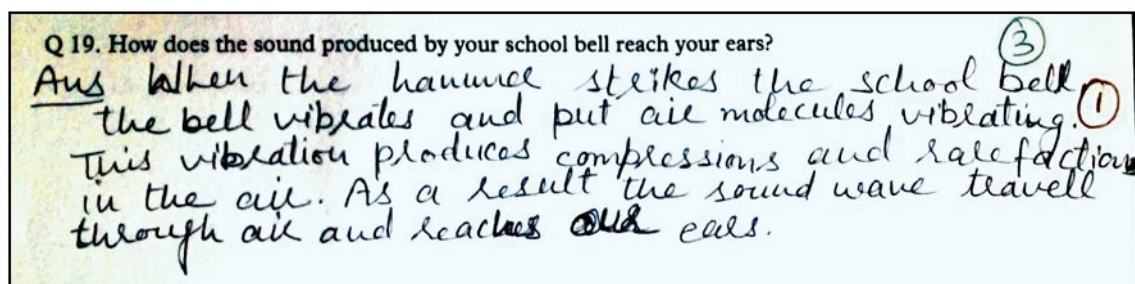 Q 19. How does the sound produced by your school bell reach your ears?
3
Ans When the hammer strikes the school bell,
the bell vibrates and put air molecules vibrating. 1
This vibration produces compressions and rarefactions
in the air. As a result the sound wave travell
through air and reaches our ears.